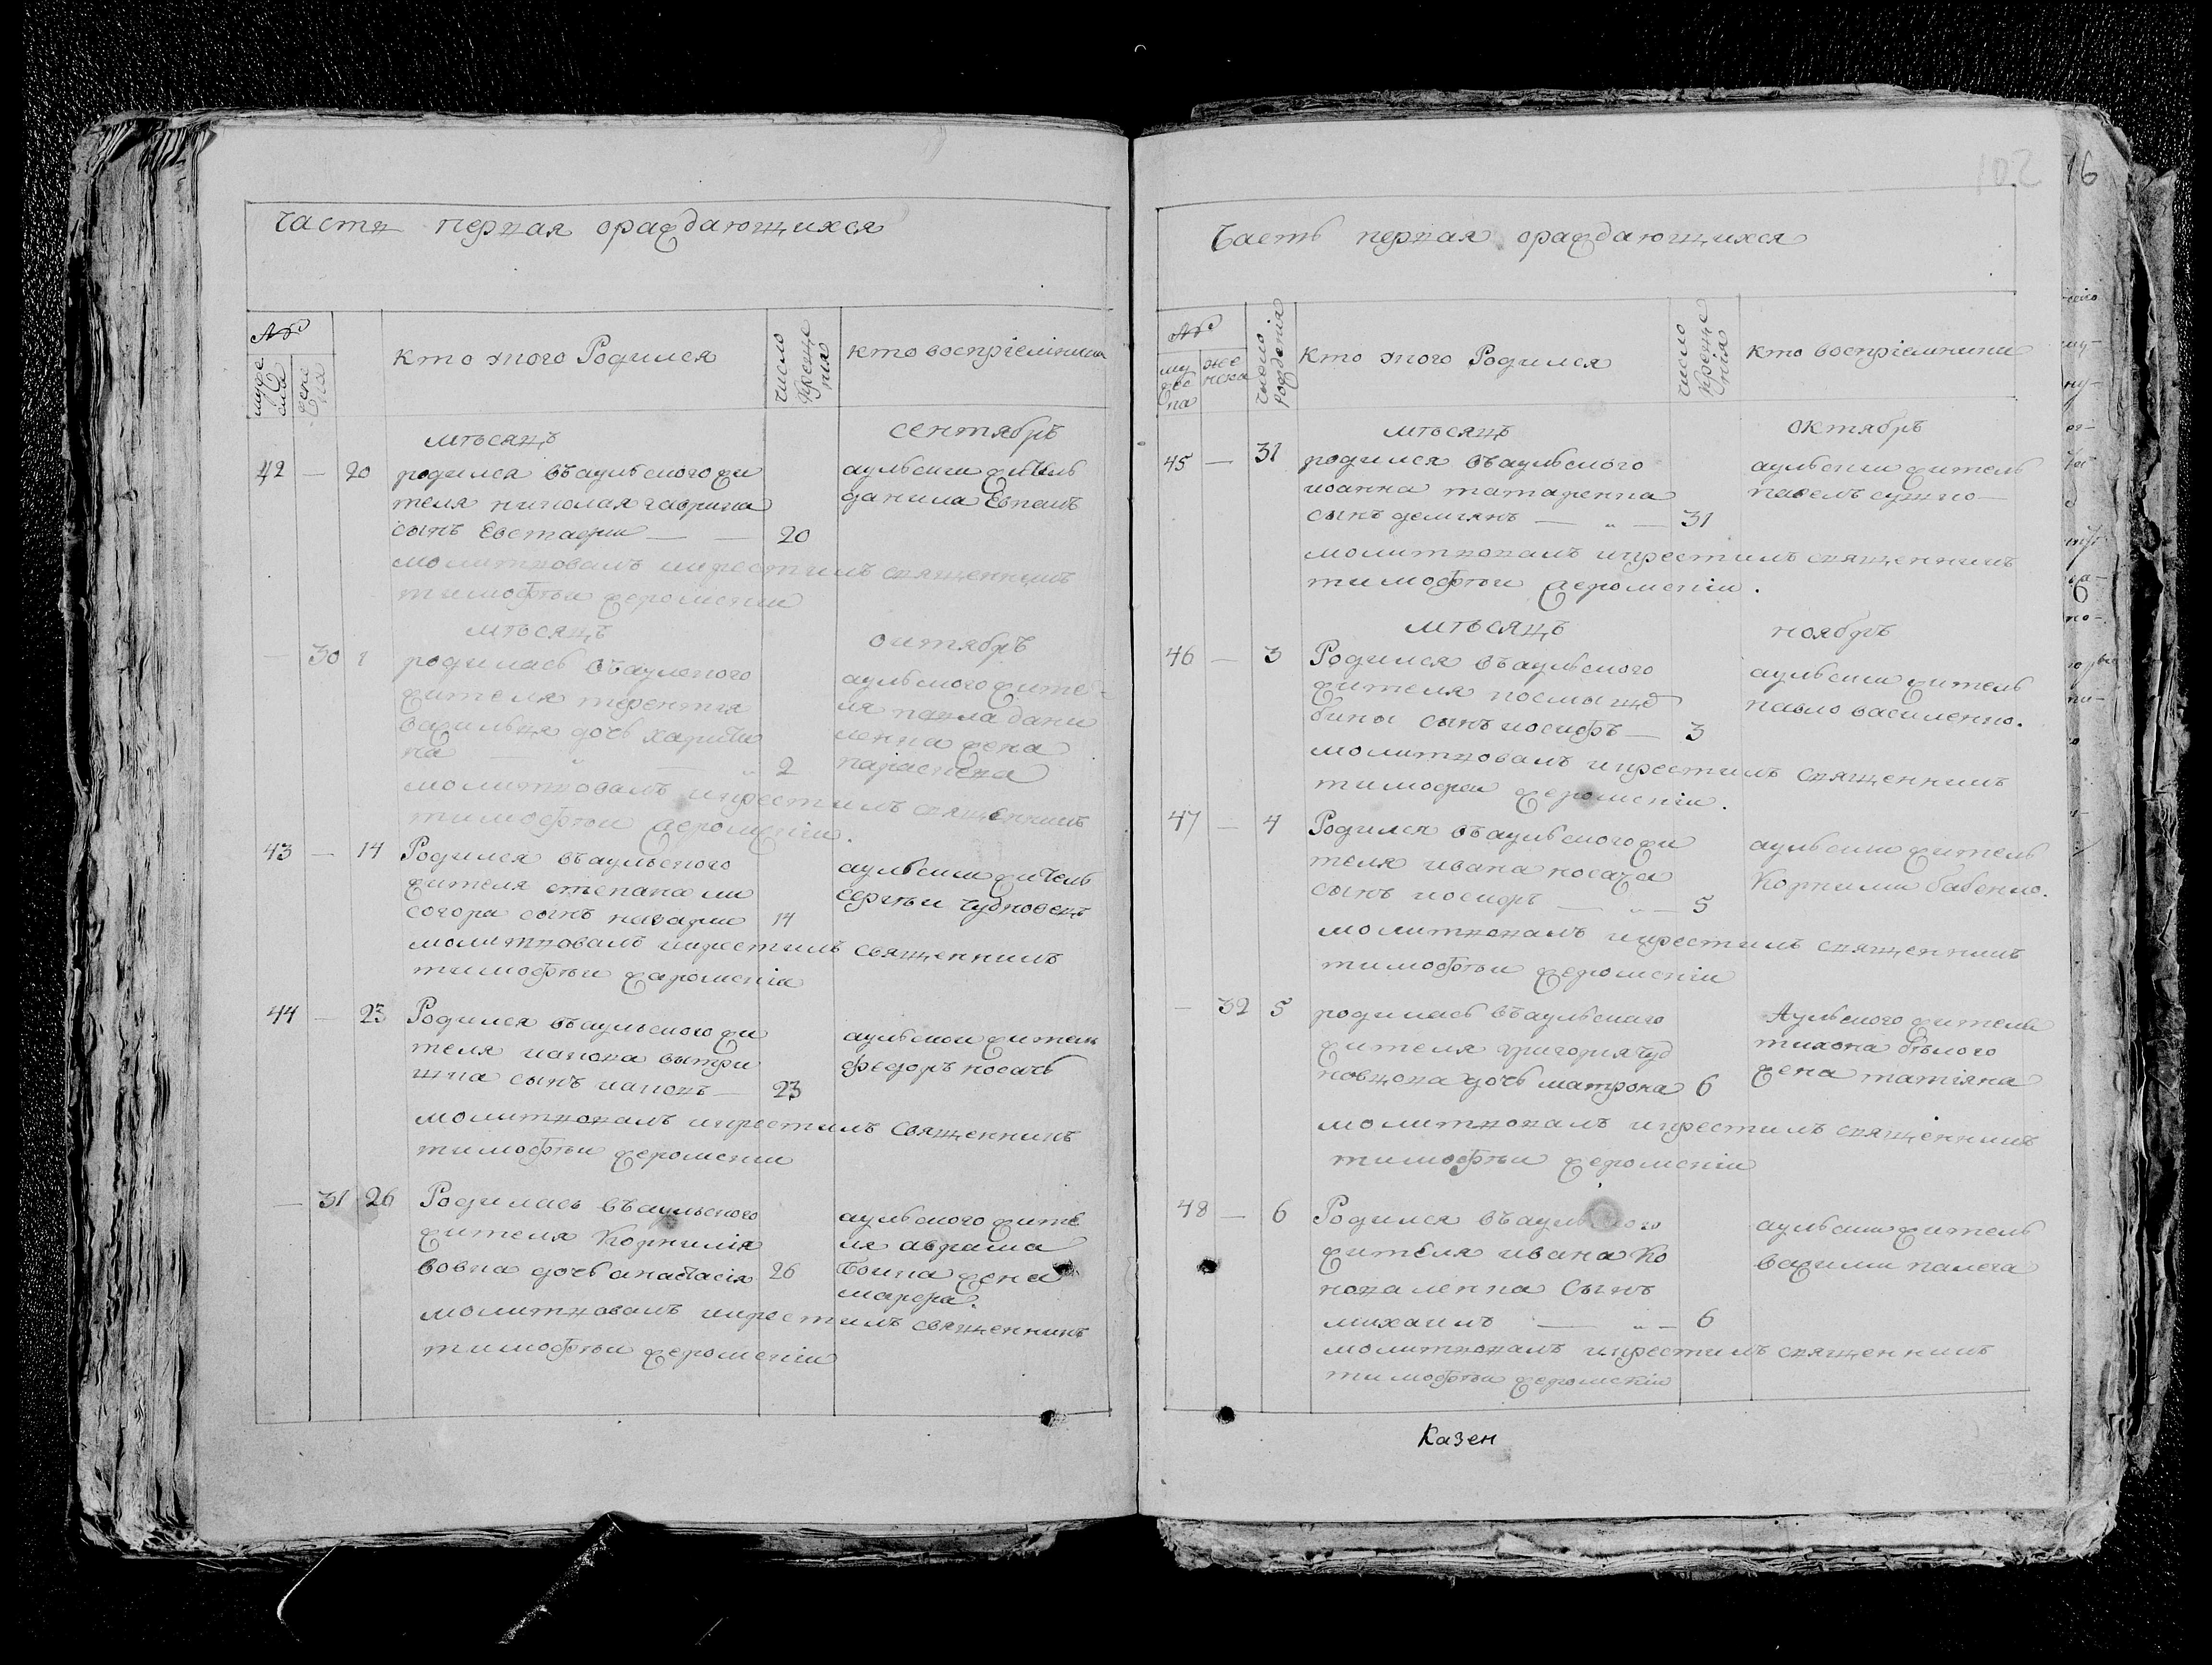 часть первая ораждающихся
№
мужеска
женска
кто укого Родился
число крещения
кто восприемники
мѣсяцъ
сентябръ
42 — 20 родился въаульского жи
теля николая гаврика
сынъ Евстафии — — 20
аульский житель
данила
молитвовалъ икрестилъ священникъ
тимофѣи жеромскии
мѣсяцъ
октябръ
— 30 1 родилась въаульского
жителя терентия
дочь харити
на — „ — „ 2
аульского жите-
ля павла дани
ленка жена
параскева
молитвовалъ икрестилъ священникъ
тимофѣи жеромскіи.
43 — 14 Родился въаульского
жителя степана ли
согора сынъ назарии 14
аульскии житель
сергѣи чудновецъ
молитвовалъ икрестилъ священникъ
тимофѣи жаромскіи
44 — 23 Родился въаульского жи
теля иакова
сынъ иаковъ — 23
аульскои житель
федоръ носачь
молитвовалъ икрестилъ священникъ
тимофѣи жеромскии
— 31 26 Родилась въаульского
жителя Корнилія
вовка дочь анастасія 26
аульского жите
ля авраама
жена
марфа.
молитвовалъ икрестилъ священникъ
тимофѣи жеромскіи
102
16
Часть первая ораждающихся
№
мужеска
женска
число рожденія
кто укого Родился
число крещенія
кто восприемники
мѣсяцъ
октябръ
45 — 31 родился въаульского
иоанна татаренка
сынъ демиянъ — „ — 31
аульскии житель
павелъ
молитвовалъ икрестилъ священникъ
тимофѣи жеромскіи.
мѣсяцъ
ноябръ
46 — 3 Родился въаульского
жителя
сынъ иосифъ — 3
аульскии житель
павло василенко.
молитвовалъ икрестилъ священникъ
тимофеи жеромскіи.
47 — 4 Родился въаульского жи
теля ивана носача
сынъ иосифъ — „ — 5
аульскии житель
Корнилии бабенко.
молитвовалъ икрестилъ священникъ
тимофѣи жеромскіи
— 32 5 родилась въаульскаго
жителя григория чуд
новцова дочь матрона 6
Аульского жителя
тихона бѣлого
жена татіяна
молитвовалъ икрестилъ священникъ
тимофѣи жеромскіи
48 — 6 Родился въаульского
жителя ивана Ко
новаленка Сынъ
михаилъ — „ — 6
аульскии житель
василии палега
молитвовалъ икрестилъ священникъ
тимофѣи жеромскіи
Казен